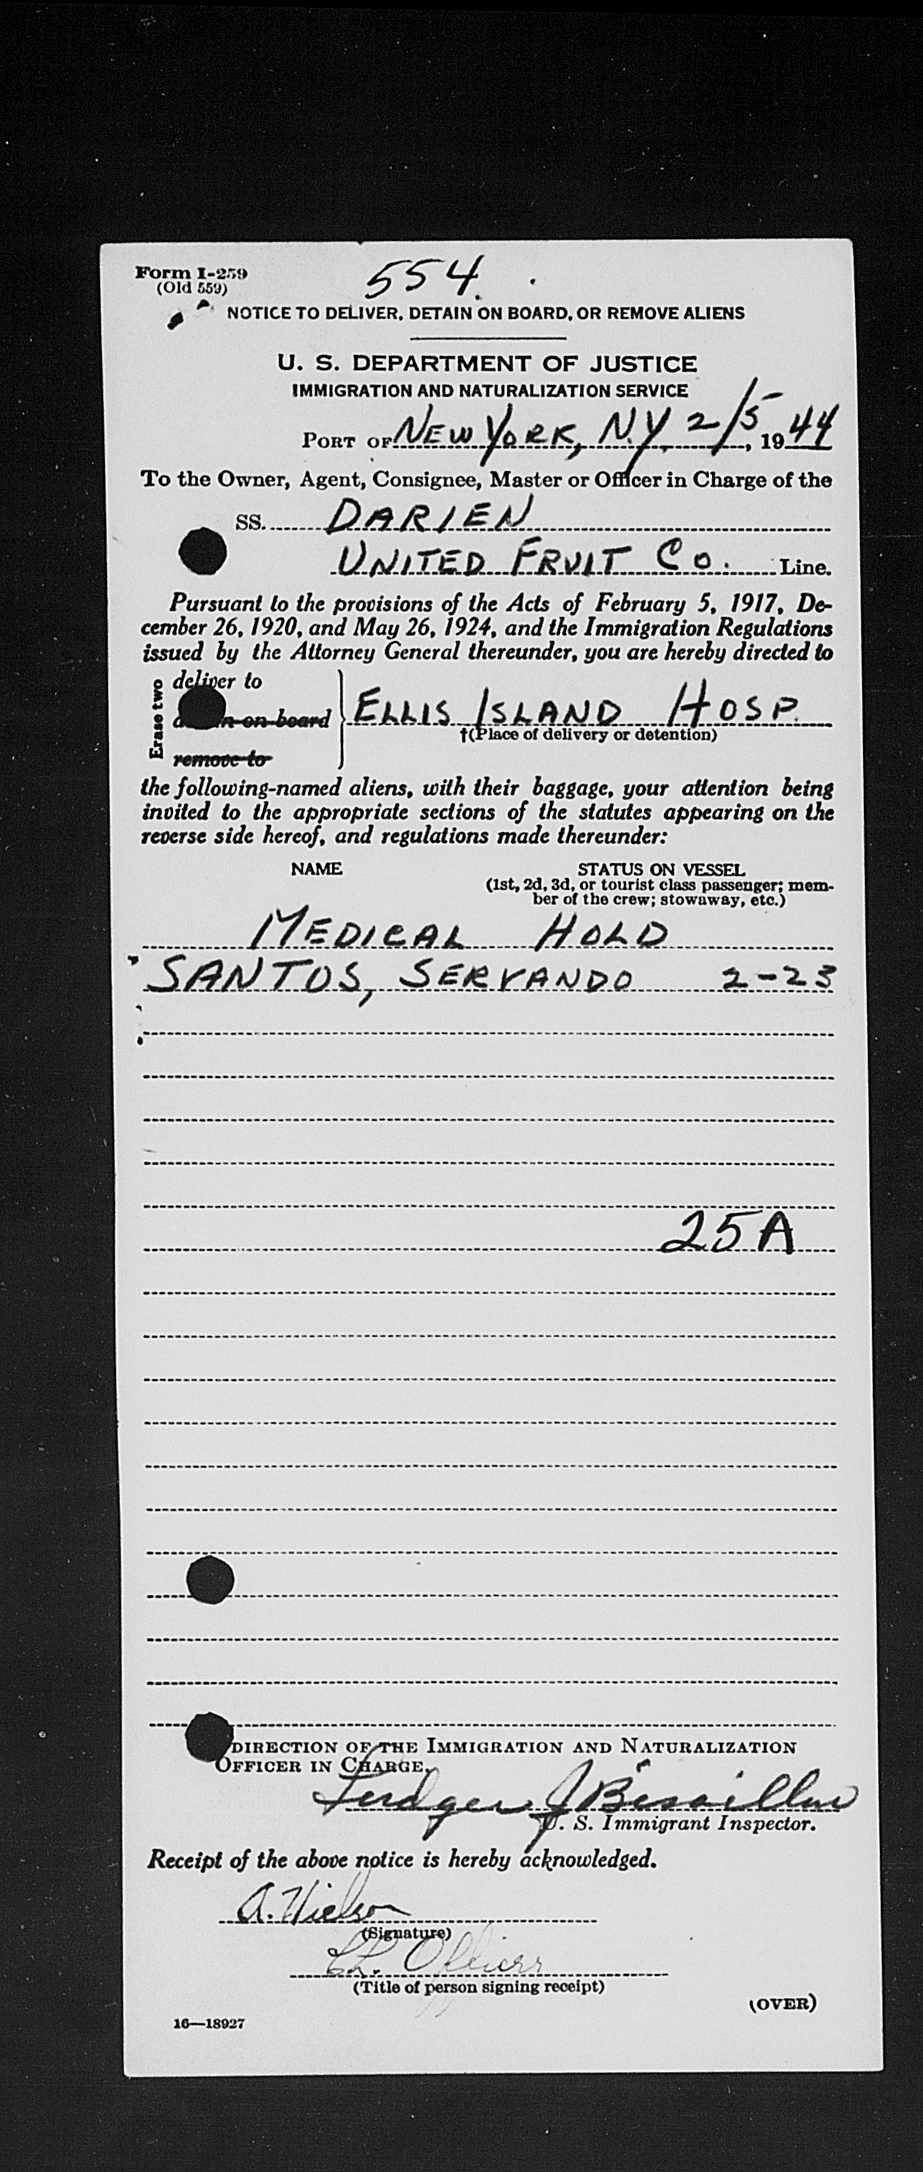 Form I-259
(Old 559)
554
NOTICE TO DELIVER, DETAIN ON BOARD, OR REMOVE ALIENS
U. S. DEPARTMENT OF JUSTICE
IMMIGRATION AND NATURALIZATION SERVICE
PORT OF NEW YORK, N.Y. 2/5, 1944
To the Owner, Agent, Consignee, Master or Officer in Charge of the
SS. DARIEN
UNITED FRUIT CO. Line.
Pursuant to the provisions of the Acts of February 5, 1917, De-
cember 26, 1920, and May 26, 1924, and the Immigration Regulations
issued by the Attorney General thereunder, you are hereby directed to
Erase two
deliver to
on board
remove to
ELLIS ISLAND HOSP.
†(Place of delivery or detention)
the following-named aliens, with their baggage, your attention being
invited to the appropriate sections of the statutes appearing on the
reverse side hereof, and regulations made thereunder:
NAME STATUS ON VESSEL
(1st, 2d, 3d, or tourist class passenger; mem-
ber of the crew; stowaway, etc.)
MEDICAL HOLD
SANTOS, SERVANDO 2-23
25A
DIRECTION OF THE IMMIGRATION AND NATURALIZATION
OFFICER IN CHARGE.
J Bisaillon
U. S. Immigrant Inspector.
Receipt of the above notice is hereby acknowledged.
A. Nielson
(Signature)
Ch. Officer
(Title of person signing receipt)
(OVER)
16—18927